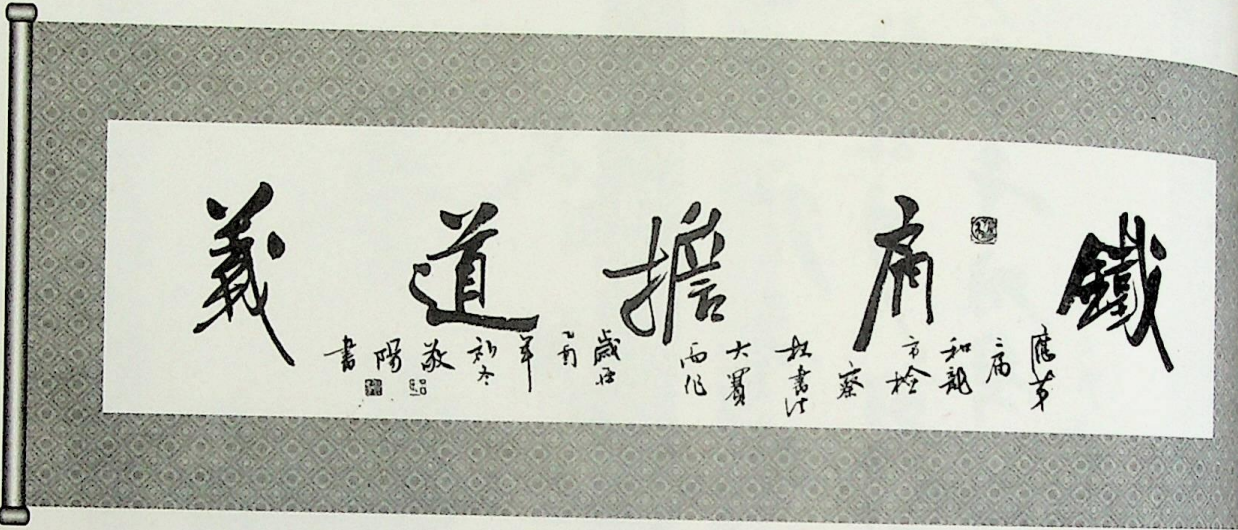 鐵肩擔道義
應第二屆和龍市檢察杯書法大賽而作
歲在乙酉年初冬敬陽書